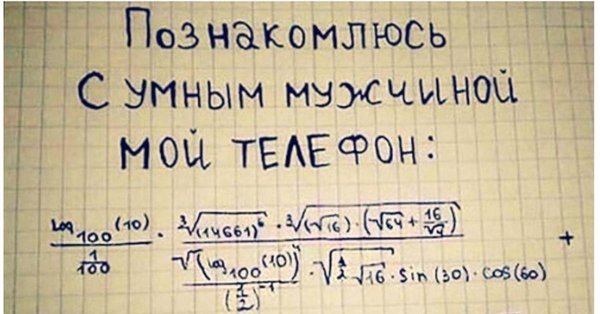 Познакомлюсь
с умным мужчиной
мой телефон:
log₁₀₀(10) / (1/100) · (∛(14661)⁶ · ∛((√16)·(√64 + 16/√4))) / ((√(log₁₀₀(10))⁴ / (1/2)⁻¹) · √(1/2 √16) · sin(30) · cos(60)) +